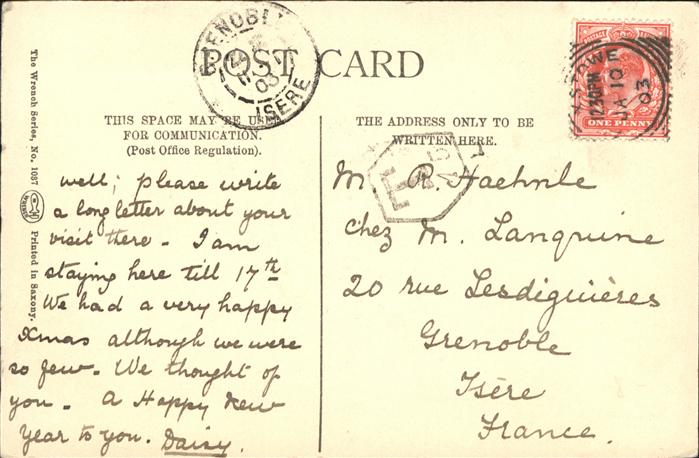 POST CARD
THIS SPACE MAY BE USED
FOR COMMUNICATION.
(Post Office Regulation).
THE ADDRESS ONLY TO BE
WRITTEN HERE.
The Wrench Series, No. 1037
Printed in Saxony.
ISERE
03
ONE PENNY
12.30PM
JA 10
03
well; please write
a long letter about your
visit there - I am
staying here till 17th
We had a very happy
Xmas although we were
so few. We thought of
you. A Happy New
Year to you. Daisy.
M. R. Haehnle
chez M. Lanquine
20 rue Lesdiguières
Grenoble
Isère
France.